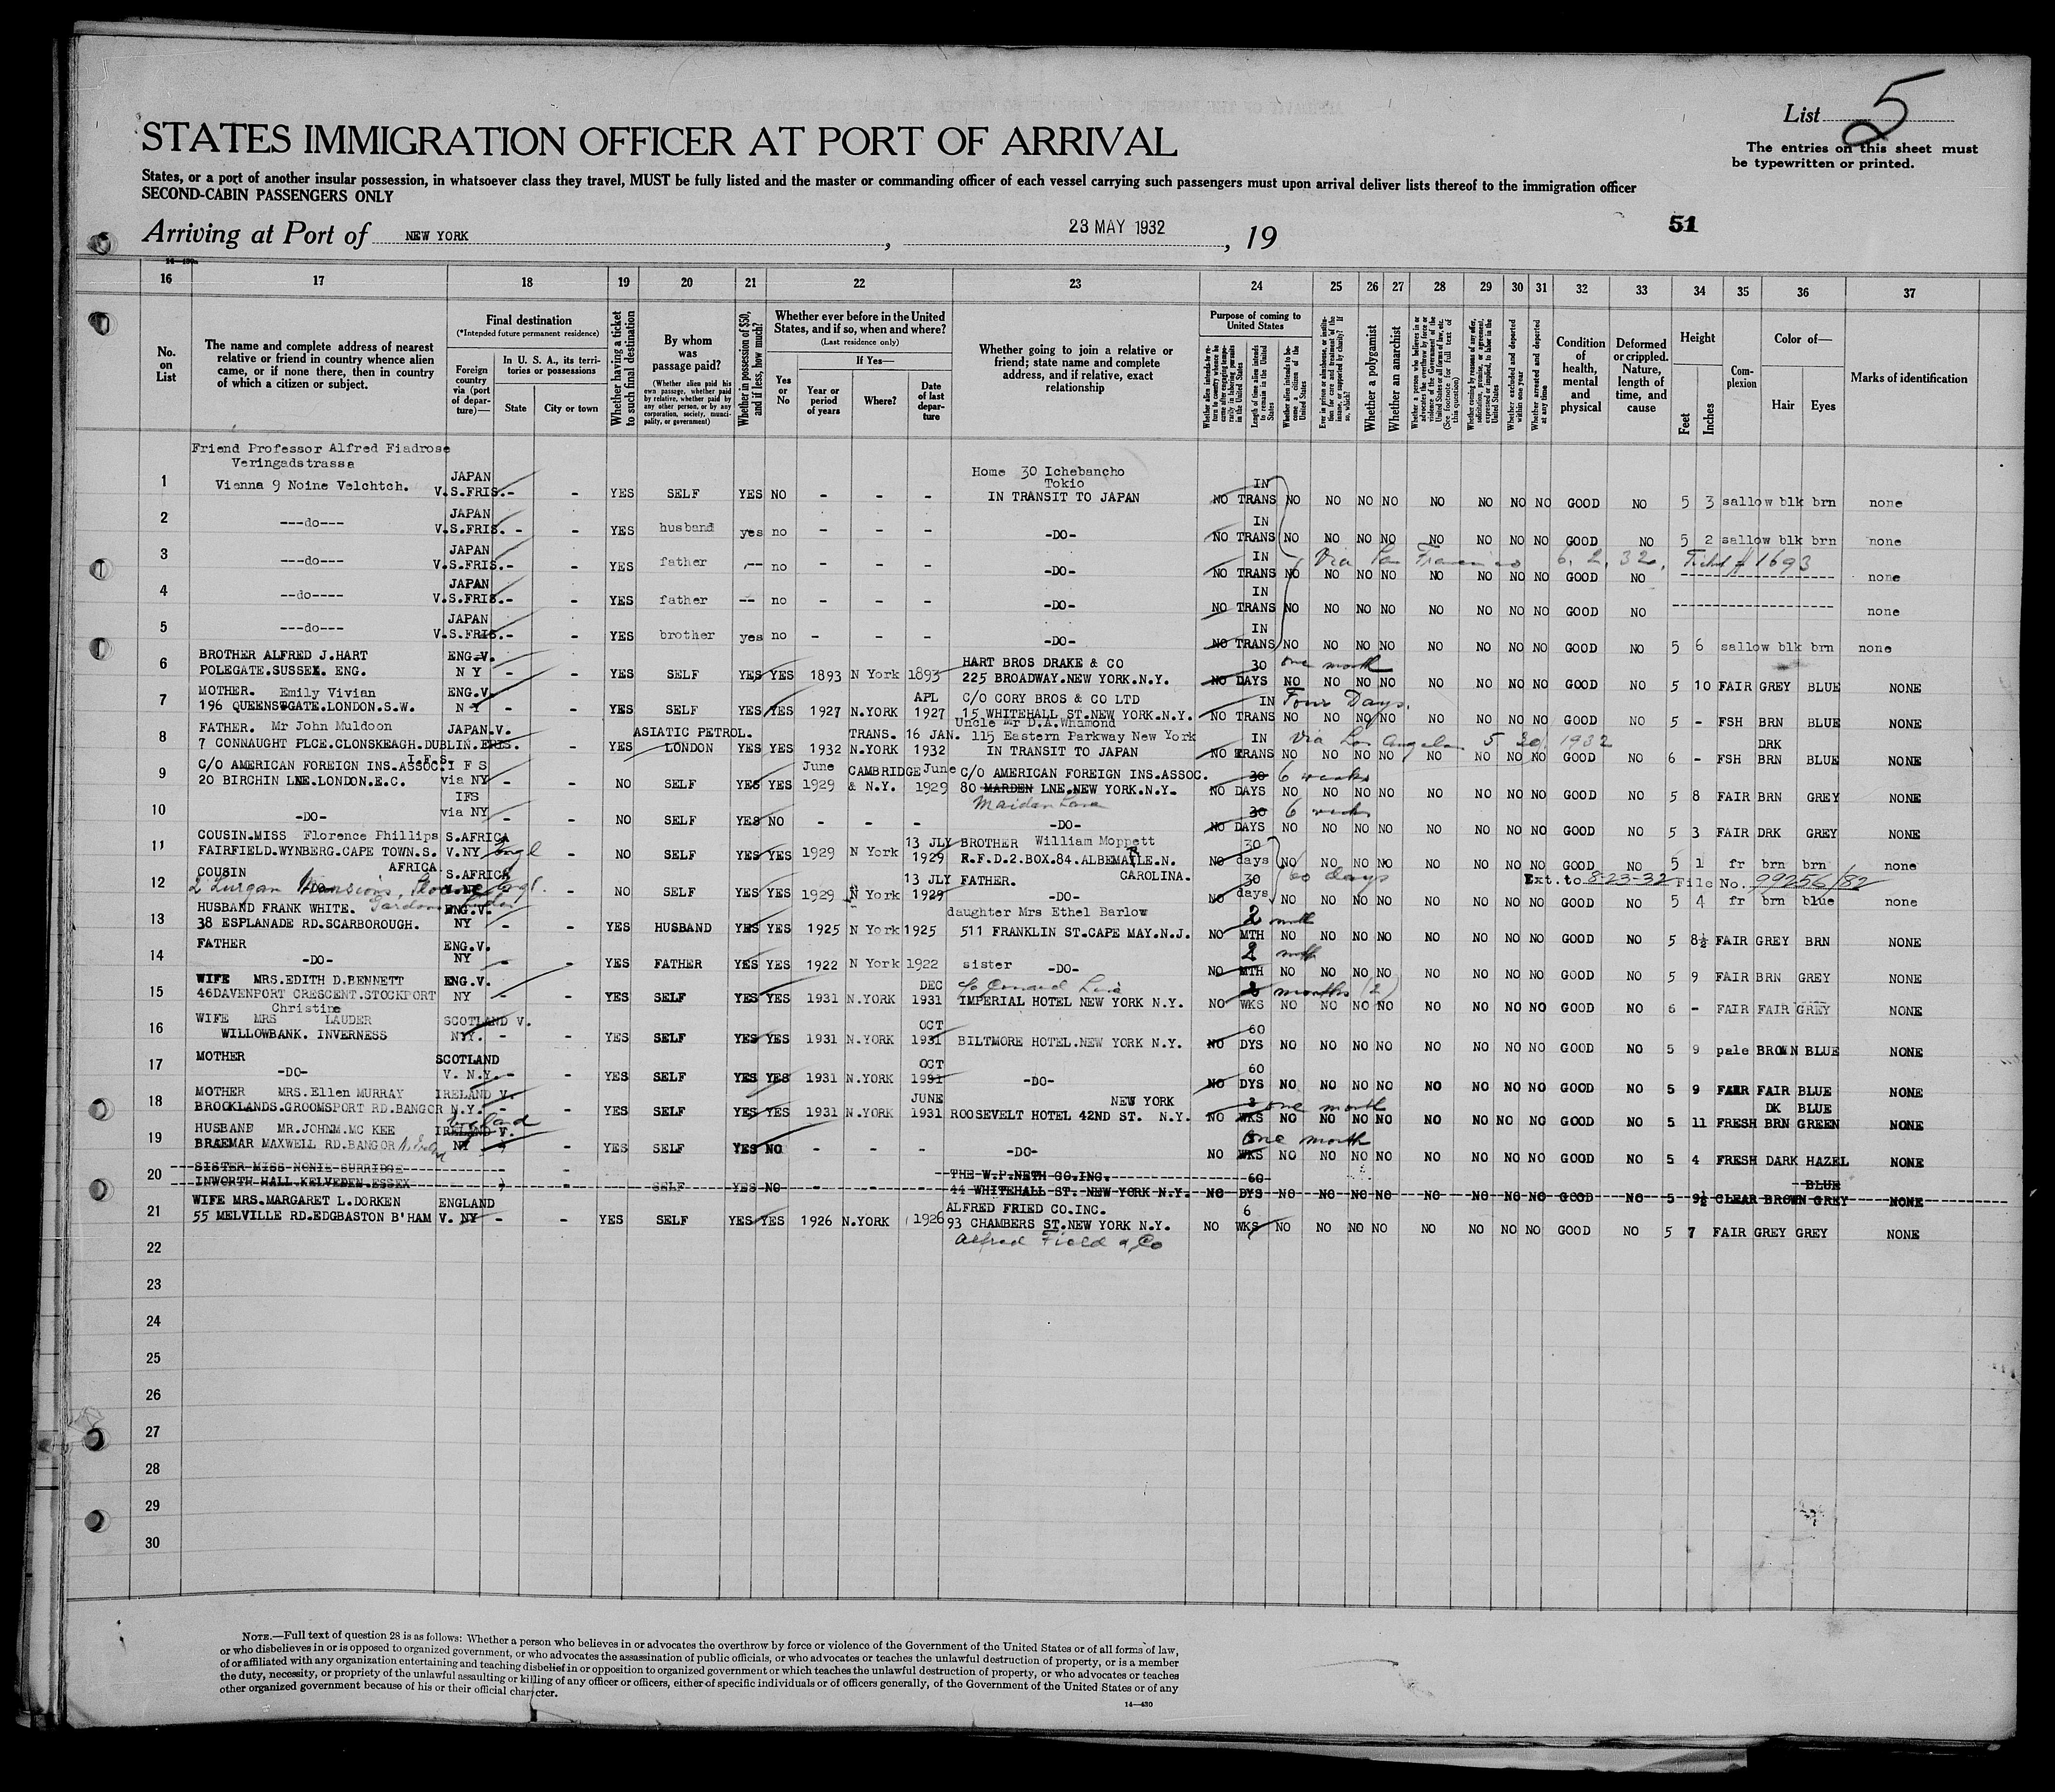 List 5
The entries on this sheet must
be typewritten or printed.
STATES IMMIGRATION OFFICER AT PORT OF ARRIVAL
States, or a port of another insular possession, in whatsoever class they travel, MUST be fully listed and the master or commanding officer of each vessel carrying such passengers must upon arrival deliver lists thereof to the immigration officer
SECOND-CABIN PASSENGERS ONLY
51
Arriving at Port of NEW YORK, 23 MAY 1932, 19
16 17 18 19 20 21 22 23 24 25 26 27 28 29 30 31 32 33 34 35 36 37
No. on List
The name and complete address of nearest relative or friend in country whence alien came, or if none there, then in country of which a citizen or subject.
Final destination
(*Intended future permanent residence)
Foreign country via (port of departure)—
In U. S. A., its territories or possessions
State
City or town
Whether having a ticket to such final destination
By whom was passage paid?
(Whether alien paid his own passage, whether paid by relative, whether paid by any other person, or by any corporation, society, municipality, or government)
Whether in possession of $50, and if less, how much?
Whether ever before in the United States, and if so, when and where?
(Last residence only)
Yes or No
If Yes—
Year or period of years
Where?
Date of last departure
Whether going to join a relative or friend; state name and complete address, and if relative, exact relationship
Purpose of coming to United States
Length of time alien intends to remain in the United States
Whether alien intends to become a citizen of the United States
Whether a polygamist
Whether an anarchist
Whether excluded and deported within one year
Whether arrested and deported at any time
Condition of health, mental and physical
Deformed or crippled. Nature, length of time, and cause
Height
Feet
Inches
Complexion
Color of—
Hair
Eyes
Marks of identification
Friend Professor Alfred Fiadrose
Veringadstrassa
1 Vienna 9 Noine Velchtch. JAPAN V.S.FRIS.- - YES SELF YES NO - - - Home 30 Ichebancho Tokio IN TRANSIT TO JAPAN NO IN TRANS NO NO NO NO NO NO NO NO GOOD NO 5 3 sallow blk brn none
2 ---do--- JAPAN V.S.FRIS. - - YES husband yes no - - - -DO- NO IN TRANS NO NO NO NO NO NO NO NO GOOD NO 5 2 sallow blk brn none
Via San Francisco 6. 2. 32. 1693
3 ---do--- JAPAN V.S.FRIS.- - YES father -- no - - - -DO- NO IN TRANS NO NO NO NO NO NO NO NO GOOD NO none
4 ---do---- JAPAN V.S.FRIS.- - YES father -- no - - - -DO- NO IN TRANS NO NO NO NO NO NO NO NO GOOD NO none
5 ---do--- JAPAN V.S.FRIS.- - YES brother yes no - - - -DO- NO IN TRANS NO NO NO NO NO NO NO NO GOOD NO 5 6 sallow blk brn none
6 BROTHER ALFRED J.HART POLEGATE.SUSSEX. ENG. ENG.V. N Y - - YES SELF YES YES 1893 N York 1893 HART BROS DRAKE & CO 225 BROADWAY.NEW YORK.N.Y. NO 30 DAYS one month NO NO NO NO NO NO NO NO GOOD NO 5 10 FAIR GREY BLUE NONE
7 MOTHER. Emily Vivian 196 QUEENSGATE.LONDON.S.W. ENG.V. N Y - - YES SELF YES YES 1927 N.YORK APL 1927 C/O CORY BROS & CO LTD 15 WHITEHALL ST.NEW YORK.N.Y. NO IN TRANS Four Days. NO NO NO NO NO NO NO NO GOOD NO 5 - FSH BRN BLUE NONE
8 FATHER. Mr John Muldoon 7 CONNAUGHT PLCE.CLONSKEAGH.DUBLIN. JAPAN.V. - YES ASIATIC PETROL. LONDON YES YES 1932 TRANS. N.YORK 16 JAN. 1932 Uncle Mr D.A.Whamond 115 Eastern Parkway New York IN TRANSIT TO JAPAN NO IN TRANS via Los Angeles 5 30 1932 NO NO NO NO NO NO NO NO GOOD NO 6 - FSH DRK BRN BLUE NONE
9 C/O AMERICAN FOREIGN INS.ASSOC. 20 BIRCHIN LNE.LONDON.E.C. I F S via NY - - NO SELF YES YES June 1929 CAMBRIDGE & N.Y. June 1929 C/O AMERICAN FOREIGN INS.ASSOC. 80 MARDEN LNE.NEW YORK.N.Y. Maiden Lane NO 30 DAYS 6 weeks NO NO NO NO NO NO NO NO GOOD NO 5 8 FAIR BRN GREY NONE
10 -DO- IFS via NY - - NO SELF YES NO - - - -DO- NO 30 DAYS 6 weeks NO NO NO NO NO NO NO NO GOOD NO 5 3 FAIR DRK GREY NONE
11 COUSIN.MISS Florence Phillips FAIRFIELD.WYNBERG.CAPE TOWN.S. AFRICA S.AFRICA V.NY Engl - NO SELF YES YES 1929 N York 13 JLY 1929 BROTHER William Moppett R.F.D.2.BOX.84.ALBEMARLE.N. CAROLINA. NO 30 days 60 days NO NO NO NO NO NO NO NO GOOD NO 5 1 fr brn brn none
Ext. to 8-23-32 File No. 99256/82
12 COUSIN -DO- 2 Lurgan Mansions, Sloane Gardens London S.AFRICA V. NY Engl. - NO SELF YES YES 1929 N York 13 JLY 1929 FATHER. -DO- NO 30 days NO NO NO NO NO NO NO NO GOOD NO 5 4 fr brn blue none
13 HUSBAND FRANK WHITE. 38 ESPLANADE RD.SCARBOROUGH. ENG.V. NY - - YES HUSBAND YES YES 1925 N York 1925 daughter Mrs Ethel Barlow 511 FRANKLIN ST.CAPE MAY.N.J. NO 2 MTH month NO NO NO NO NO NO NO NO GOOD NO 5 8½ FAIR GREY BRN NONE
14 FATHER -DO- ENG.V. NY - - YES FATHER YES YES 1922 N York 1922 sister -DO- NO 2 MTH NO NO NO NO NO NO NO NO GOOD NO 5 9 FAIR BRN GREY NONE
15 WIFE MRS.EDITH D.BENNETT 46DAVENPORT CRESCENT.STOCKPORT ENG.V. NY - - YES SELF YES YES 1931 N.YORK DEC 1931 c/o Cunard Line IMPERIAL HOTEL NEW YORK N.Y. NO WKS months (2) NO NO NO NO NO NO NO NO GOOD NO 6 - FAIR FAIR GREY NONE
16 WIFE MRS Christine LAUDER WILLOWBANK. INVERNESS SCOTLAND V. NY. - - YES SELF YES YES 1931 N.YORK OCT 1931 BILTMORE HOTEL.NEW YORK N.Y. NO 60 DYS NO NO NO NO NO NO NO NO GOOD NO 5 9 pale BROWN BLUE NONE
17 MOTHER -DO- SCOTLAND V. N.Y. - - YES SELF YES YES 1931 N.YORK OCT 1931 -DO- NO 60 DYS NO NO NO NO NO NO NO NO GOOD NO 5 9 FAIR FAIR BLUE NONE
18 MOTHER MRS.Ellen MURRAY BROCKLANDS.GROOMSPORT RD.BANGOR IRELAND V. N.Y. - - YES SELF YES YES 1931 N.YORK JUNE 1931 ROOSEVELT HOTEL 42ND ST. NEW YORK N.Y. NO 3 WKS one month NO NO NO NO NO NO NO NO GOOD NO 5 11 FRESH DK BRN BLUE GREEN NONE
19 HUSBAND MR.JOHN M.MC KEE BRAEMAR MAXWELL RD.BANGOR IRELAND V. NY - YES SELF YES NO - - - -DO- NO WKS One month NO NO NO NO NO NO NO NO GOOD NO 5 4 FRESH DARK HAZEL NONE
20 SISTER MISS NONIE SURRIDGE INWORTH HALL KELVEDEN.ESSEX - - SELF YES NO - - - THE W.P.NETH CO.INC. 44 WHITEHALL ST. NEW YORK N.Y. NO 60 DYS NO NO NO NO NO NO NO NO GOOD NO 5 9½ CLEAR BROWN BLUE GREY NONE
21 WIFE MRS.MARGARET L.DORKEN 55 MELVILLE RD.EDGBASTON B'HAM ENGLAND V. NY - - YES SELF YES YES 1926 N.YORK 1926 ALFRED FRIED CO.INC. 93 CHAMBERS ST.NEW YORK N.Y. NO 6 WKS NO NO NO NO NO NO NO NO GOOD NO 5 7 FAIR GREY GREY NONE
22 Alfred Field & Co
23
24
25
26
27
28
29
30
NOTE.—Full text of question 28 is as follows: Whether a person who believes in or advocates the overthrow by force or violence of the Government of the United States or of all forms of law,
or who disbelieves in or is opposed to organized government, or who advocates the assassination of public officials, or who advocates or teaches the unlawful destruction of property, or is a member
of or affiliated with any organization entertaining and teaching disbelief in or opposition to organized government or which teaches the unlawful destruction of property, or who advocates or teaches
the duty, necessity, or propriety of the unlawful assaulting or killing of any officer or officers, either of specific individuals or of officers generally, of the Government of the United States or of any
other organized government because of his or their official character.
14—430